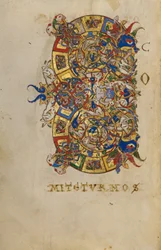 C
O
MITETVRNOS